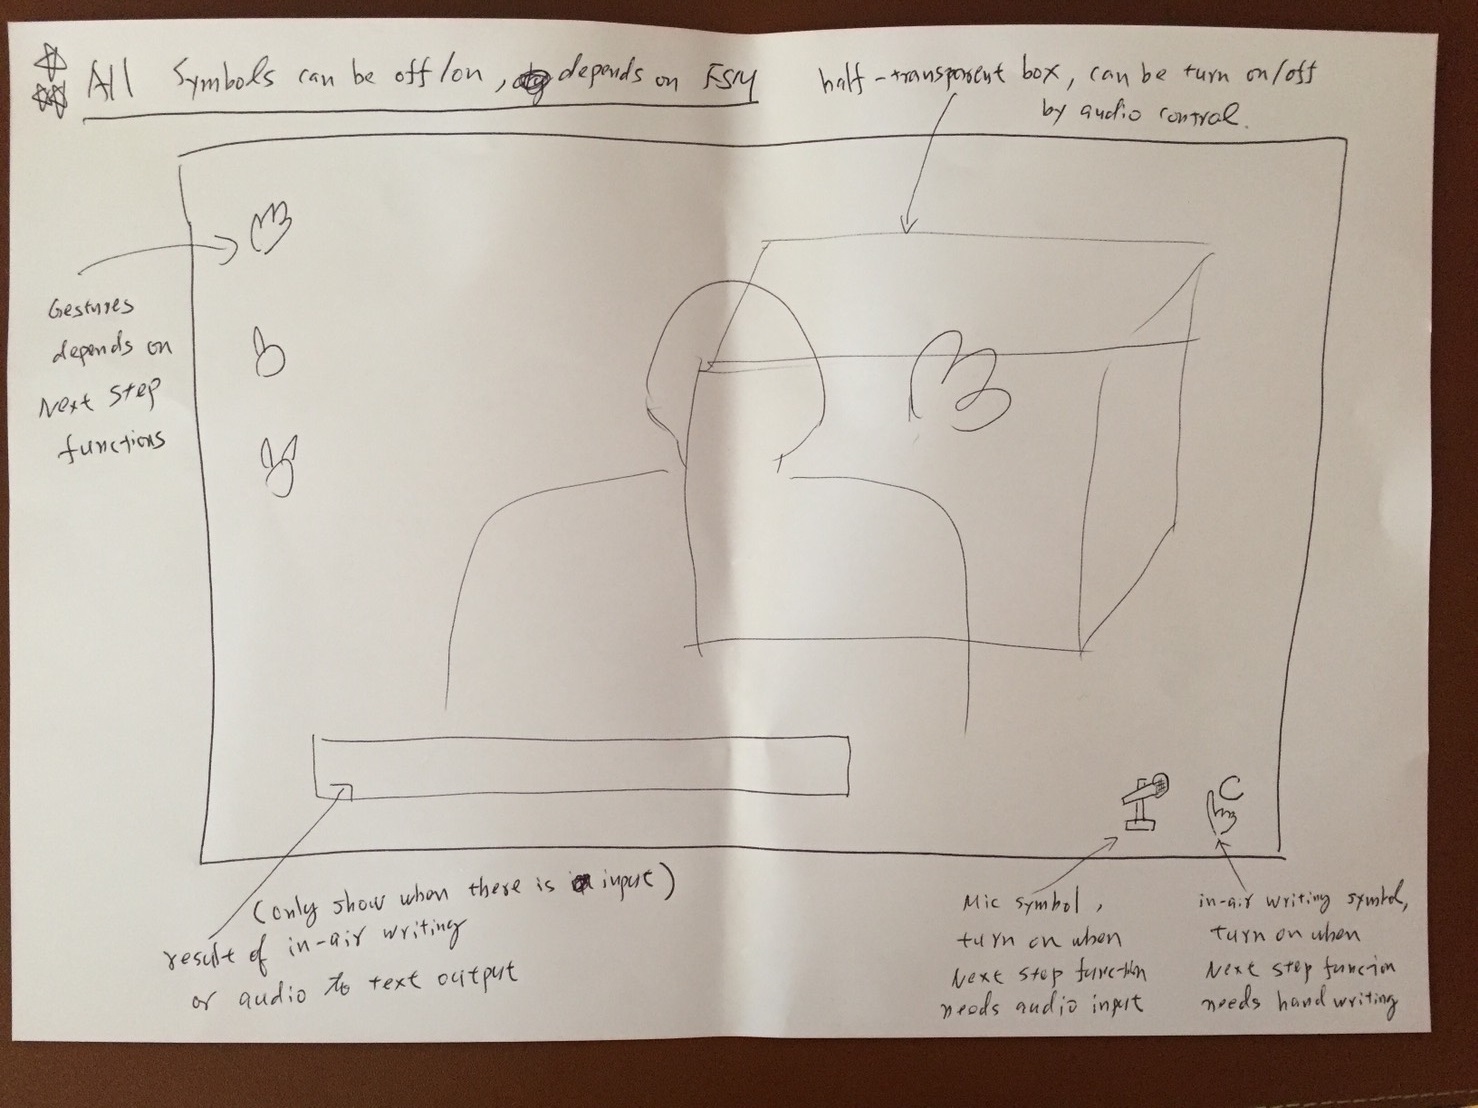 All Symbols can be off/on, depends on FSM
half-transparent box, can be turn on/off
by audio control.
Gestures
depends on
Next step
functions
(only show when there is input)
result of in-air writing
or audio to text output
Mic symbol,
turn on when
Next step function
needs audio input
C
in-air writing symbol,
turn on when
Next step funcion
needs hand writing